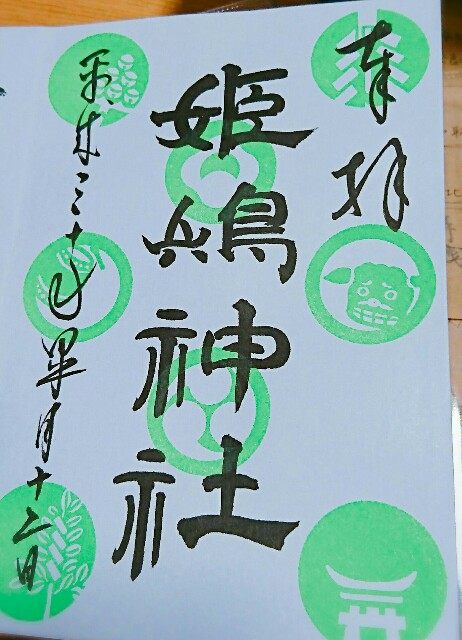 奉拝
姫嶋神社
平成三十年皐月十二日